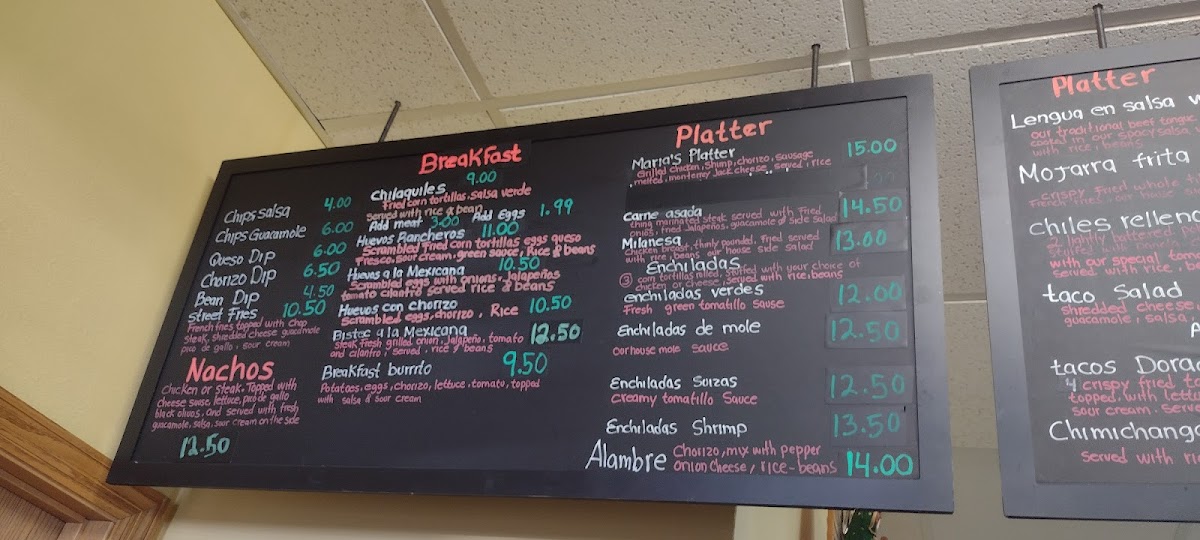 Chips salsa 4.00
Chips Guacamole 6.00
Queso Dip 6.00
Chorizo Dip 6.50
Bean Dip 4.50
Street Fries 10.50
French fries topped with chop
steak, shredded cheese guacamole
pico de gallo, sour cream
Nachos
Chicken or Steak. Topped with
cheese sause, lettuce, pico de gallo
black olivos, and served with fresh
guacamole, salsa, sour cream on the side
12.50
Breakfast
Chilaquiles 9.00
Fried corn tortillas, salsa verde
served with rice & bean
Add meat 3.00 Add Eggs 1.99
Huevos Rancheros 11.00
Scrambled fried corn tortillas eggs queso
fresco, sour cream, green sauce, Rice & beans
Huevos a la Mexicana 10.50
Scrambled eggs with onions, Jalapeños
tomato cilantro served rice & beans
Huevos con chorizo 10.50
Scrambled eggs, chorizo, Rice
Bistec a la Mexicana 12.50
steak fresh grilled onion, Jalapeño, tomato
and cilantro, served, rice & beans
Breakfast burrito 9.50
Potatoes, eggs, chorizo, lettuce, tomato, topped
with salsa & sour cream
Platter
Maria's Platter 15.00
Grilled chicken, Shimp, chorizo, sausage
melted, monterey Jack cheese, served, rice
Carne asada 14.50
thing marinated steak served with Fried
onios, fried Jalapeños, guacamole & side salad
Milanesa 13.00
chicken breast, thinly pounded, fried served
with rice, beans our house side salad
Enchiladas
3 corn tortillas rilled, stuffed with your choice of
chicken or cheese, served with rice, beans
enchiladas verdes 12.00
Fresh green tomatillo sause
Enchiladas de mole 12.50
Our house mole sauce
Enchiladas Suizas 12.50
Creamy tomatillo Sauce
Enchiladas Shrimp 13.50
Alambre Chorizo, mix with pepper
onion cheese, rice-beans 14.00
Platter
Lengua en salsa
our traditional beef tongue
cooked in our spicy salsa
with rice, beans
Mojarra frita
crispy Fried whole
French fries, our house
chiles rellen
with our special toma
served with rice, b
taco Salad
shredded cheese
guacamole, salsa
tacos Dora
4 crispy fried ta
topped, with lettu
sour cream. serv
Chimichanga
served with ri